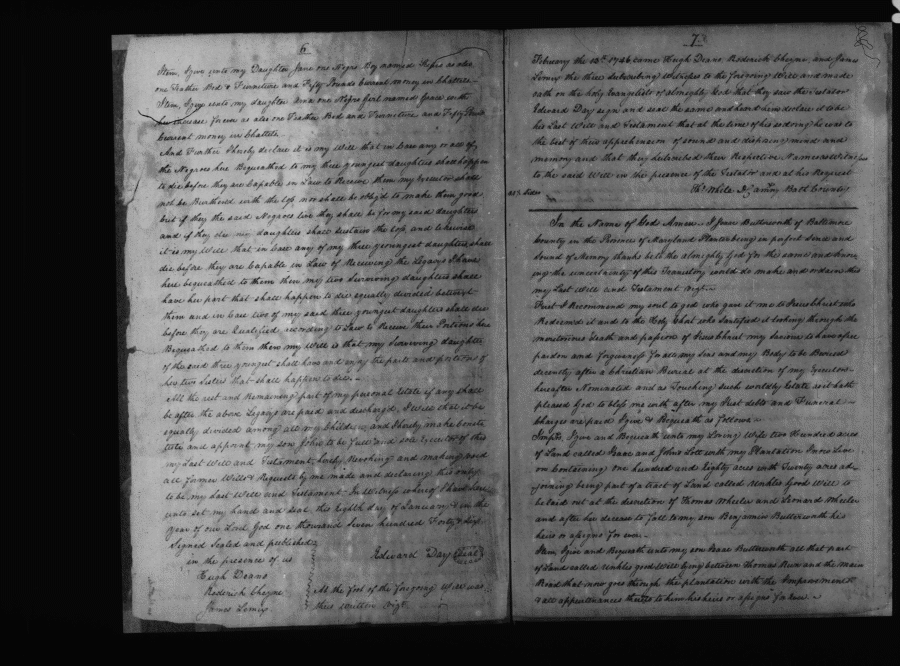 6
Item, I give unto my Daughter Jane one Negro Boy named as also
one Feather Bed & Furniture and Fifty Pounds Current money in Chattels
Item, I give unto my daughter Ann one Negro Girl named Grace with
her increase as also one Feather Bed and Furniture and Fifty Pounds
Current money in Chattels
And Further I hereby declare it is my Will that in Case any or all of
the Negroes here Bequeathed to my three youngest daughters shall happen
to die before they are Capable in Law to Receive them my Executor shall
not be Burthen'd with the loss nor shall be oblig'd to make them good
but if they the said Negroes live they shall be for my said daughters
and if they die my daughters shall sustain the loss and likewise
it is my Will that in Case any of my three youngest daughters shall
die before they are Capable in Law of Receiving the Legacys I have
here bequeathed to them then my two surviving daughters shall
have her part that shall happen to die equally divided betwixt
them and in Case two of my said three youngest daughters shall die
before they are Qualified according to Law to Receive their Portions here
Bequeathed to them then my Will is that my surviving daughter
of the said three youngest shall have and enjoy the parts and portions of
her two Sisters that shall happen to die
All the rest and Remaining part of my personal Estate if any shall
be after the above Legacys are paid and discharged, I Will that it be
equally divided among all my Children, and I hereby make Consti
tute and appoint my son John to be full and sole Executor of this
my Last Will and Testament, hereby Revoking and making void
all former Wills & Requests by me made and declaring this only
to be my Last Will and Testament In Witness whereof I have here
unto set my hand and seal this Eighth day of January & in the
year of our Lord God one thousand seven hundred Forty & Six
Signed Sealed and published
in the presence of us
Edward Day
Hugh Deans
Roderick Cheyne
At the foot of the foregoing Will was
James Lomis
thus written Vizt
7
February the 13th 1746 came Hugh Deans Roderick Cheyne, and James
Lomis the three Subscribing Witnesses to the foregoing Will and made
oath on the holy Evangelists of almighty God that they saw the Testator
Edward Day sign and seal the same and heard him declare it to be
his Last Will and Testament that at the time of his so doing he was to
the best of their apprehension of sound and disposing mind and
memory and that they subscribed their Respective Names as Witnesses
to the said Will in the presence of the Testator and at his Request
White Balt County
In the Name of God Amen. I Isaac Butterworth of Baltimore
County in the Province of Maryland Planter being in perfect Sence and
Sound of Memory thanks be to the almighty God for the same and know
ing the uncertainty of this Transitory world do make and ordain this
my Last Will and Testament Vizt.
First I Recommend my soul to god who gave it me to Jesus Christ who
Redeemed it and to the Holy Ghost who Santified it looking through the
meritorious death and passion of Jesus Christ my saviour to have free
pardon and forgiveness for all my Sins and my Body to be Buried
decently after a Christian Burial at the discretion of my Executors
hereafter Nominated and as Touching such worldly Estate as it hath
pleased God to bless me with after my Just debts and Funeral
charges are paid I give & Bequeath as follows
Imprs. I give and Bequeath unto my Loving Wife two Hundred acres
of Land called Isaac and Johns Lott with my Plantation I now Live
on Containing one hundred and Eighty acres with Twenty acres ad-
joining being part of a tract of Land called Unkles Good Will to
be laid out at the discretion of Thomas Wheeler and Leonard Wheeler
and after her decease to fall to my son Benjamin Butterworth his
heirs or assigns for ever
Item I give and Bequeath unto my son Isaac Butterworth all that part
of Land called Unkles good Will lying between Thomas Run and the main
Road that now goes through the plantation with the Improvements
& all appurtenances thereto to him his heirs or assigns for ever